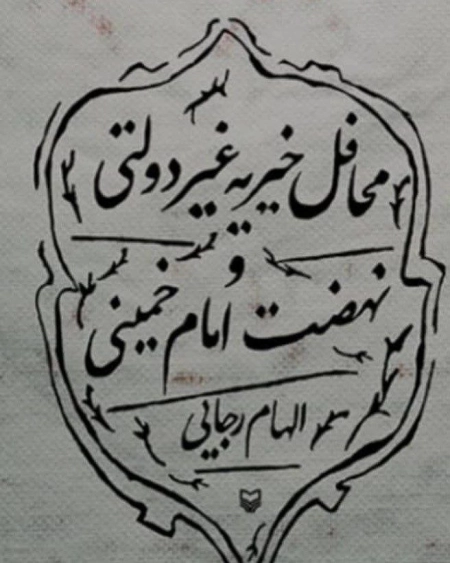 محافل خیریه غیردولتی
و
نهضت امام خمینی
الهام رجایی